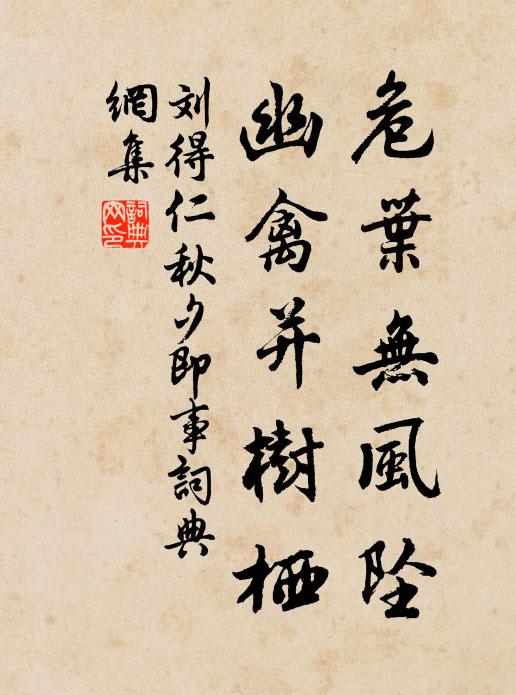 危葉無風墜
幽禽并樹栖
刘得仁秋夕即事詞典
網集
詞典
文印